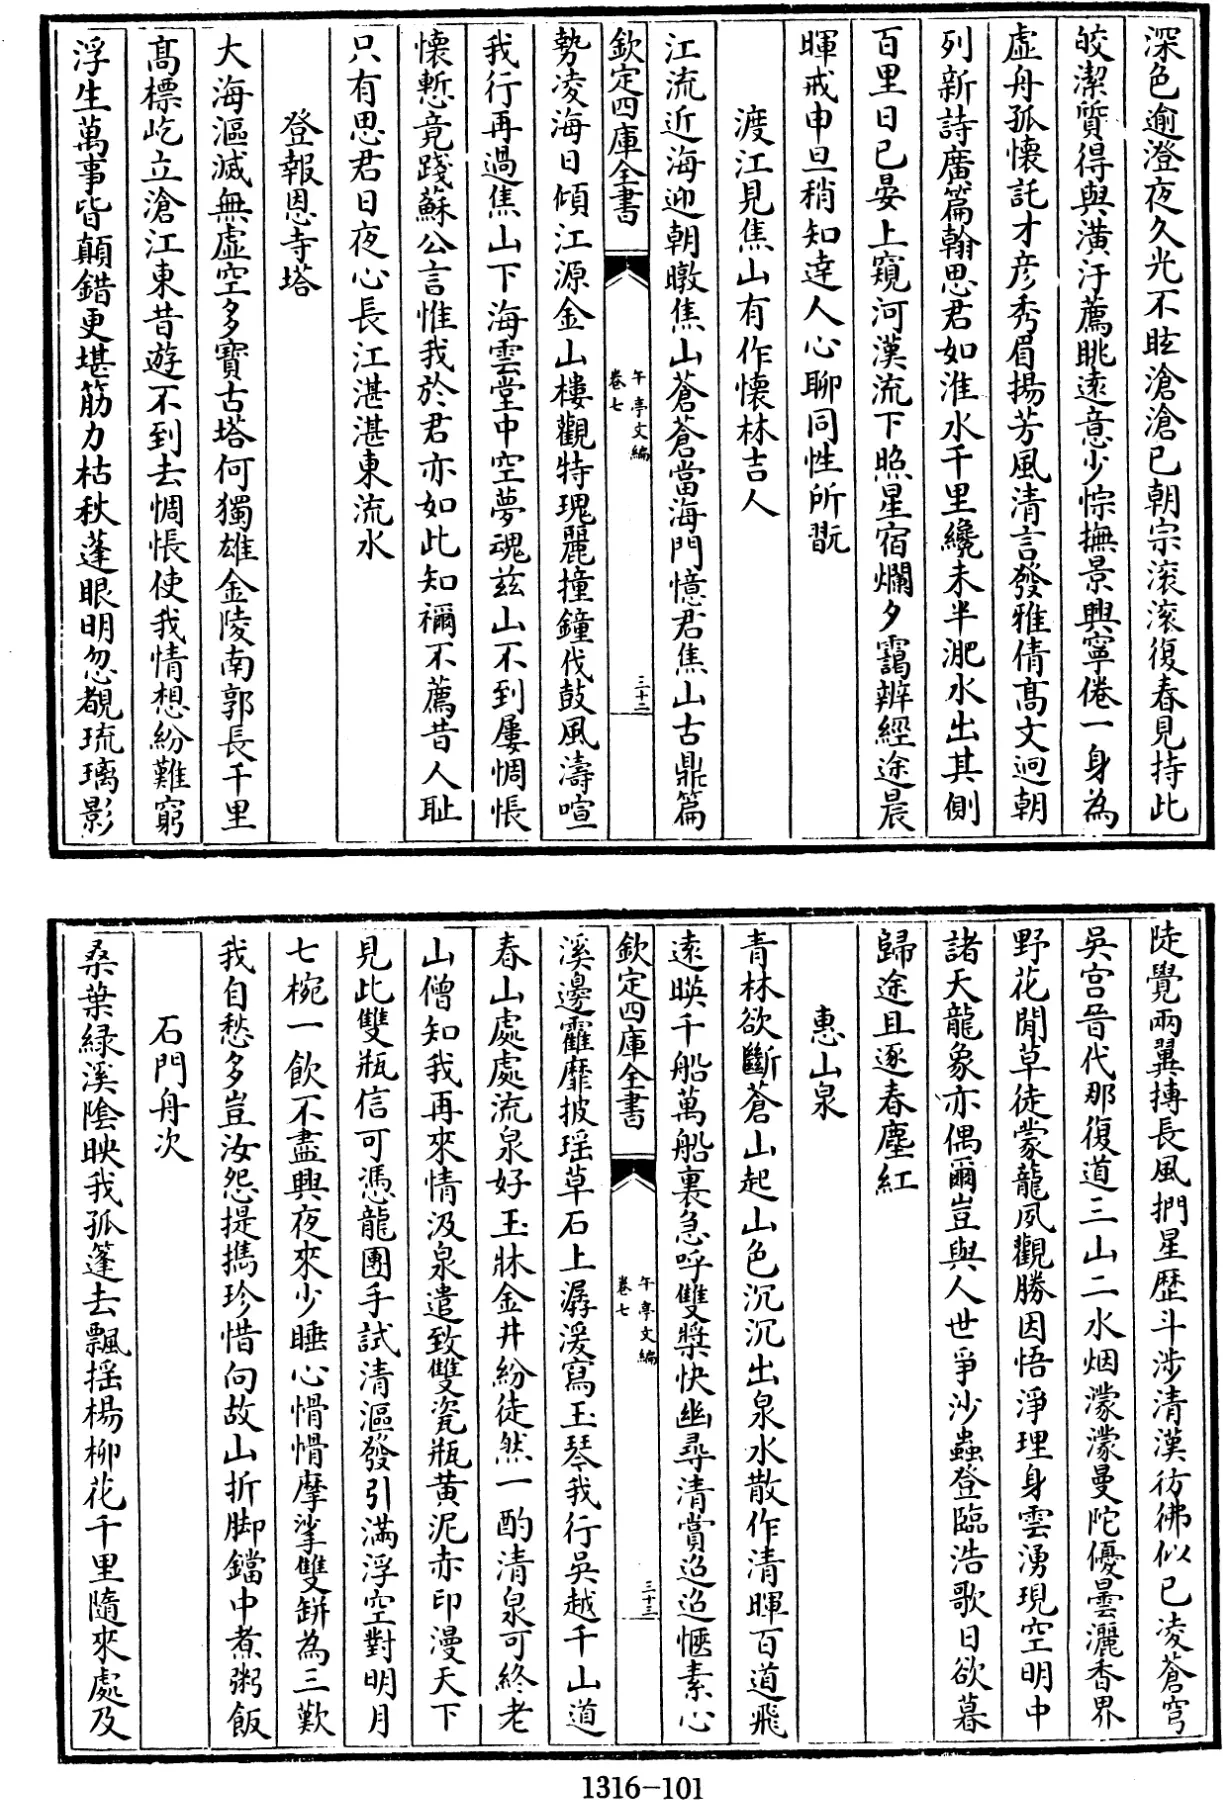 深色逾澄夜久光不眩滄滄已朝宗滚滚復春見持此
皎潔質得與潢汙薦眺遠意少悰撫景興寧倦一身為
虚舟孤懐託才彦秀眉揚芳風清言發雅倩髙文逈朝
列新詩廣篇翰思君如淮水千里纔未半淝水出其側
百里日已晏上窺河漢流下照星宿爛夕靄辨經途晨
暉戒申旦稍知達人心聊同性所翫
渡江見焦山有作懐林吉人
江流近海迎朝暾焦山蒼蒼當海門憶君焦山古鼎篇
欽定四庫全書
午亭文編
卷七
三十二
勢凌海日傾江源金山樓觀特瑰麗撞鐘伐鼓風濤喧
我行再過焦山下海雲堂中空夢魂兹山不到屢惆悵
懐慙竟踐蘇公言惟我於君亦如此知禰不薦昔人耻
只有思君日夜心長江湛湛東流水
登報恩寺塔
大海漚滅無虚空多寶古塔何獨雄金陵南郭長千里
髙標屹立滄江東昔遊不到去惆悵使我情想紛難窮
浮生萬事皆顛錯更堪筋力枯秋蓬眼明忽覩琉璃影
陡覺兩翼摶長風捫星歴斗涉清漢彷彿似已凌蒼穹
吳宫晉代那復道三山二水烟濛濛曼陀優曇灑香界
野花閒草徒蒙龍夙觀勝因悟淨理身雲湧現空明中
諸天龍象亦偶爾豈與人世爭沙蟲登臨浩歌日欲暮
歸途且逐春塵紅
惠山泉
青林欲斷蒼山起山色沉沉出泉水散作清暉百道飛
遠暎千船萬船裏急呼雙槳快幽尋清賞迢迢愜素心
欽定四庫全書
午亭文編
卷七
三十三
溪邊靃靡披瑶草石上潺湲寫玉琴我行吳越千山道
春山處處流泉好玉牀金井紛徒然一酌清泉可終老
山僧知我再來情汲泉遣致雙瓷瓶黄泥赤印漫天下
見此雙瓶信可憑龍團手試清漚發引滿浮空對明月
七椀一飲不盡興夜來少睡心愲愲摩挲雙缾為三歎
我自愁多豈汝怨提攜珍惜向故山折脚鐺中煮粥飯
石門舟次
桑葉緑溪陰映我孤篷去飄揺楊柳花千里隨來處及
1316-101